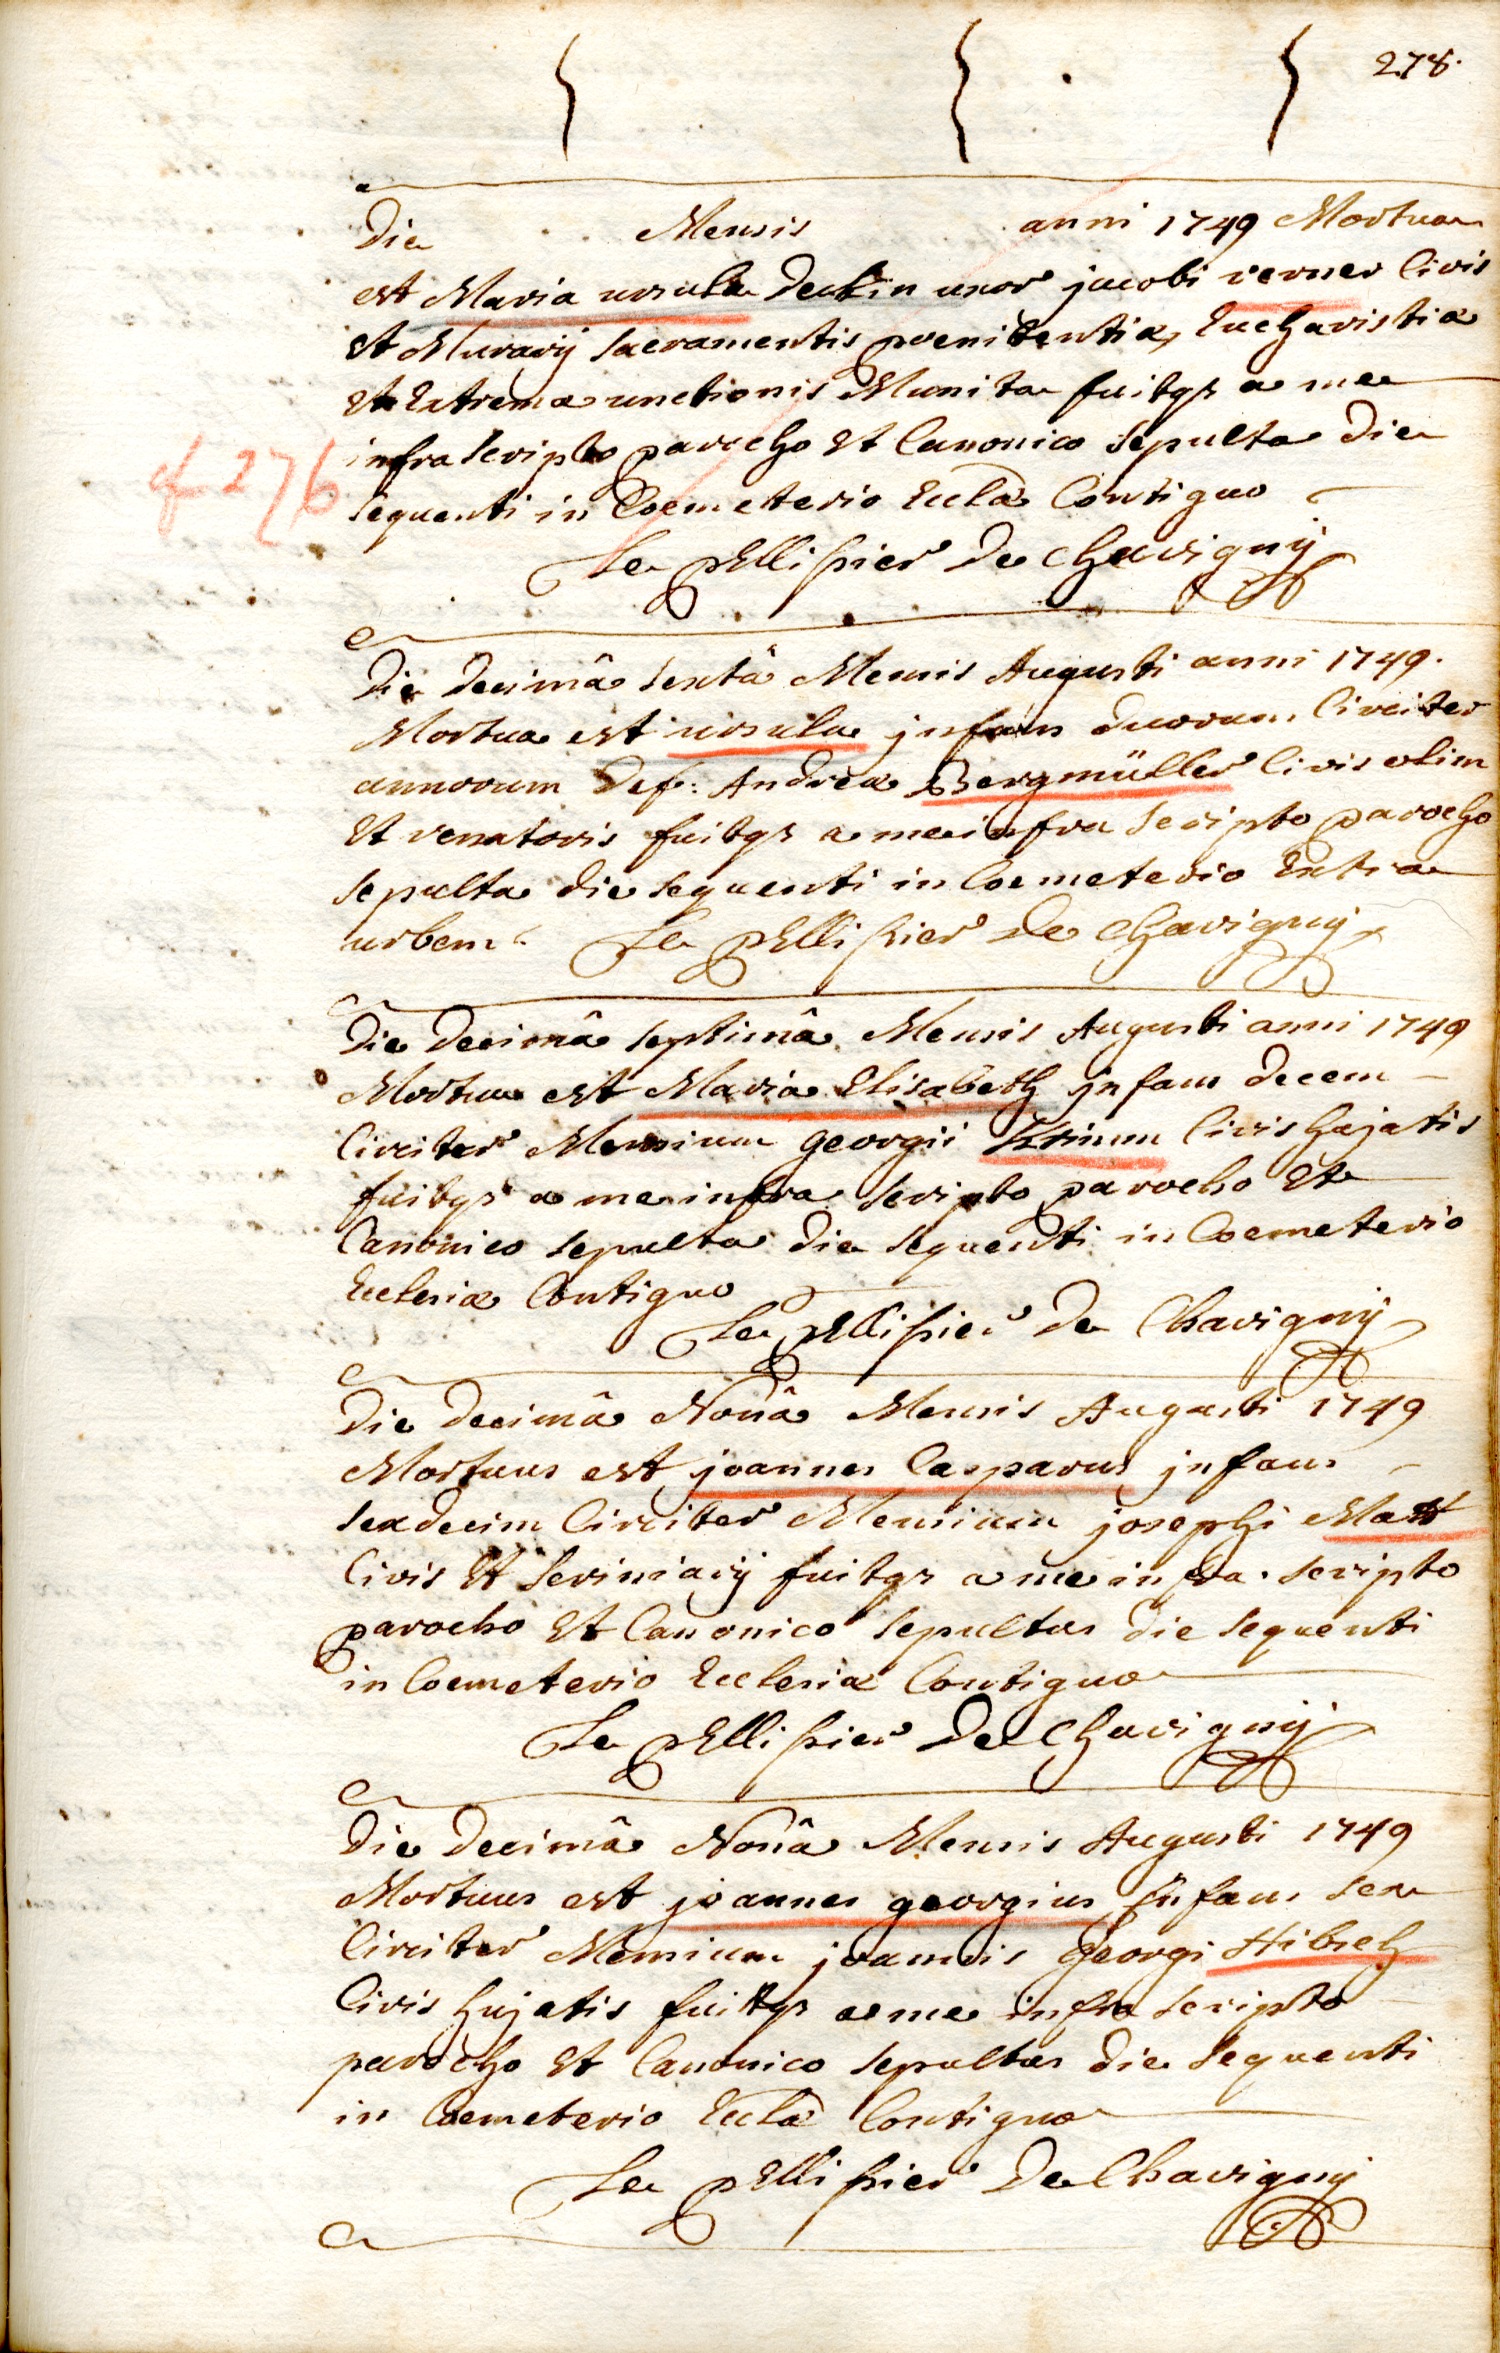 278.
Die Mensis anni 1749 Mortua
est Maria ursula Deckin uxor jacobi verner Civis
et Murarij sacramentis poenitentiæ, Eucharistiæ
et Extremæ unctionis Munita fuitqs a me
infra scripto parocho et Canonico sepulta die
sequenti in Coemeterio Eccla Contiguo
cf 276
Le pEllissier De Chavignÿ
Die Decimâ sextâ Mensis Augusti anni 1749.
Mortua est ursula jnfans duorum Circiter
annorum Def: Andreæ Bergmüller Civis olim
et venatoris fuitqs a me infra scripto parocho
sepulta die sequenti in Coemeterio Extra
urbem. Le pEllissier De Chavigny
Die Decimâ septimâ Mensis Augusti anni 1749
Mortua est Maria Elisabeth jnfans decem
Circiter Mensium georgii Civis hujatis
fuitqs a me infra scripto parocho et
Canonico sepulta die sequenti in Coemeterio
Ecclesiæ Contiguo
Le pEllissier De Chavignÿ
Die Decimâ Nonâ Mensis Augusti 1749
Mortuus est joannes Casparus jnfans
sexdecim Circiter Mensium josephi Matt
Civis et scriniarij fuitqs a me infra scripto
parocho et Canonico sepultus die sequenti
in Coemeterio Ecclesiæ Contiguo
Le pEllissier De Chavignÿ
Die Decimâ Nonâ Mensis Augusti 1749
Mortuus est joannes georgius jnfans sex
Circiter Mensium joannis Georgi Hibsch
Civis hujatis fuitqs a me infra scripto
parocho et Canonico sepultus die sequenti
in Coemeterio Eccla Contiguo
Le pEllissier De Chavigny